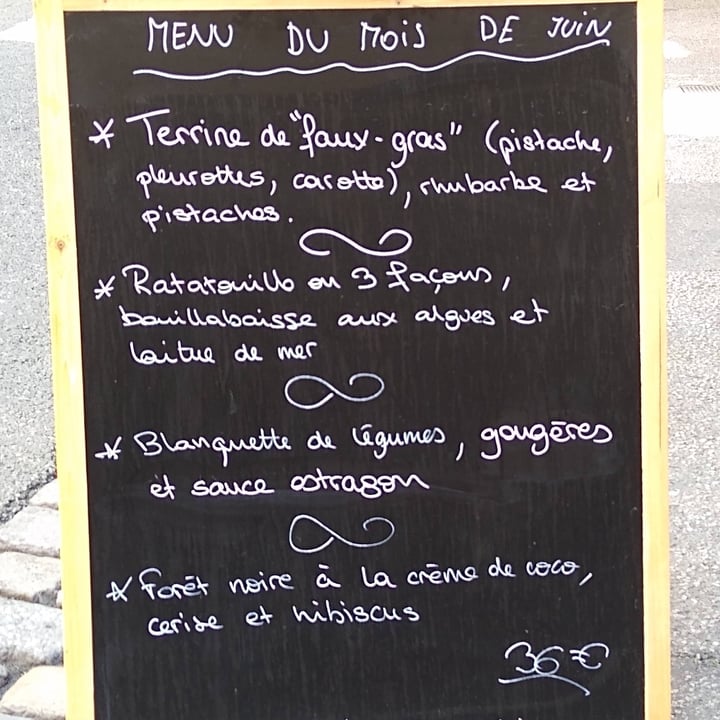 MENU DU MOIS DE JUIN
* Terrine de "faux-gras" (pistache,
pleurottes, carotte), rhubarbe et
pistaches.
* Ratatouille en 3 façons,
bouillabaisse aux algues et
laitue de mer
* Blanquette de légumes, gougères
et sauce estragon
* Forêt noire à la crème de coco,
cerise et hibiscus
36 €